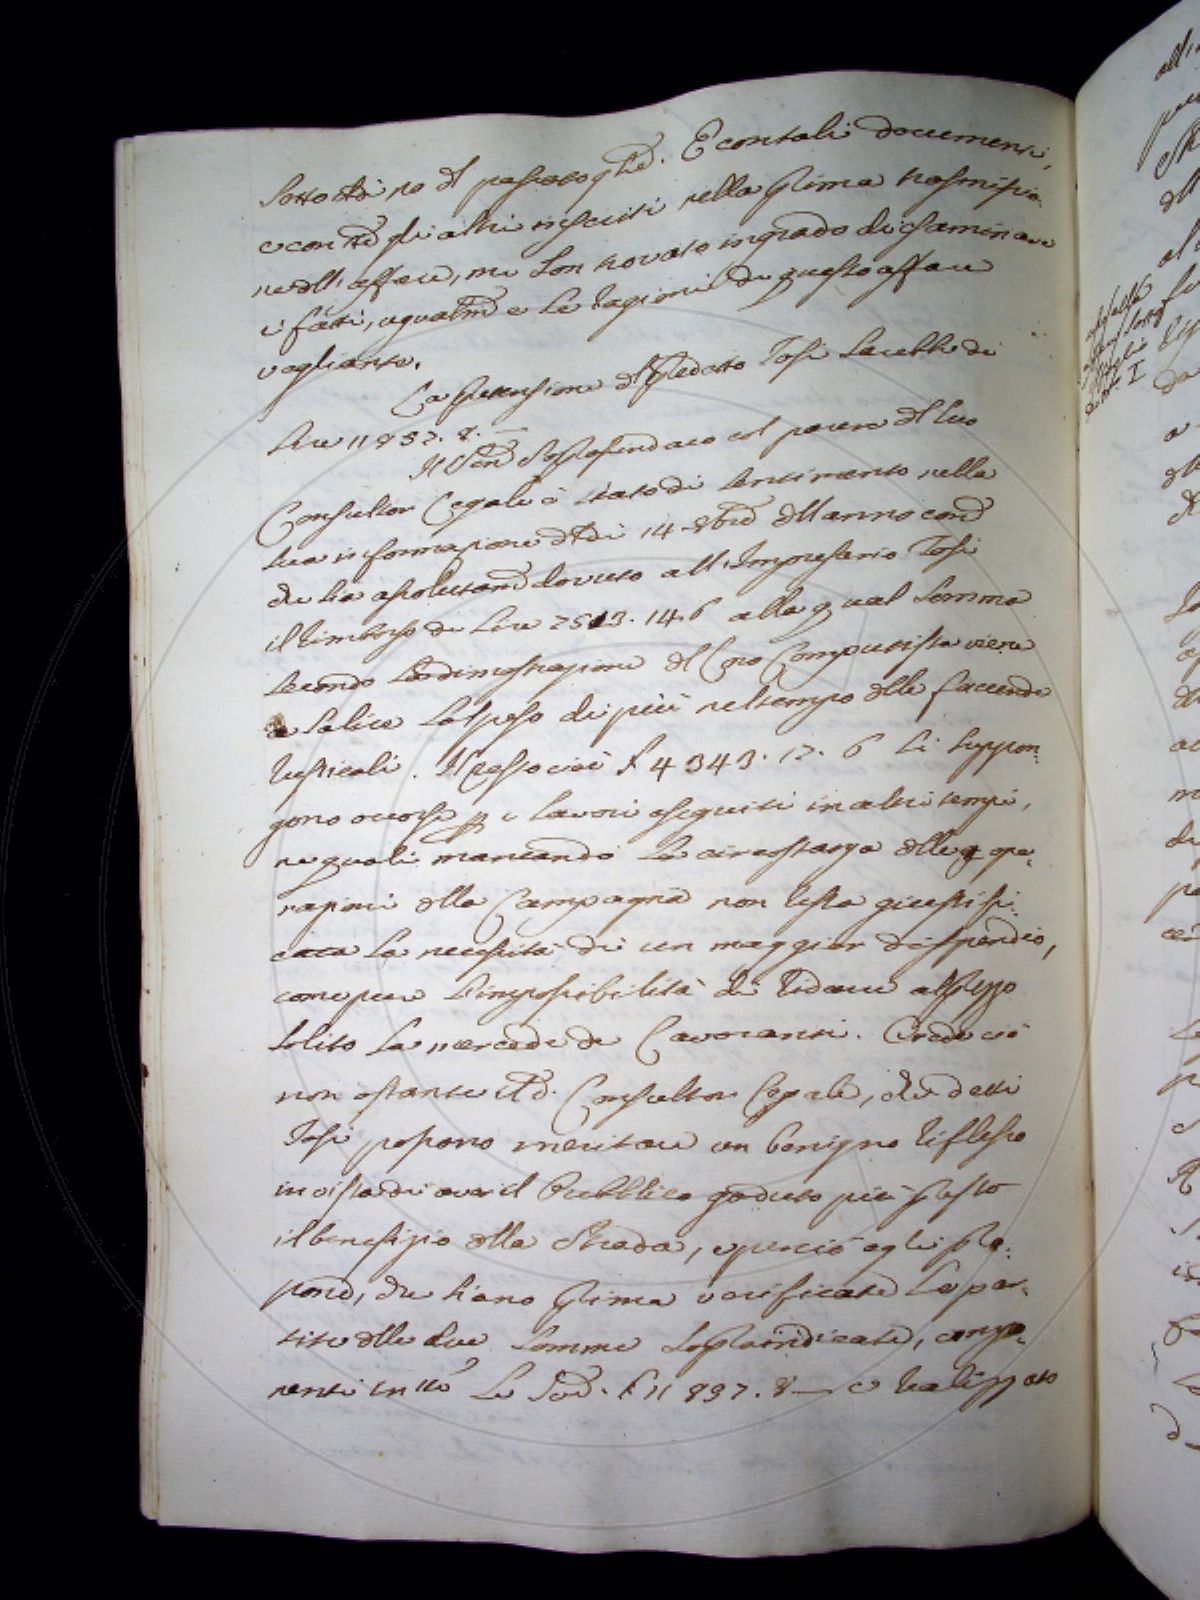 sotto dì 10 d passato . E con tali documenti,
e con gli altri inseriti nella prima trasmissio-
ne dell'affare, mi son trovato in grado di esaminare
i fatti, ugualm.e e le ragioni di questo affare
vegliante.
La pretensione del Predetto Tosi sarebbe di
Lire 11837. 8. —
Il Sindaco col parere del suo
Consultor Legale è stato di sentimento nella
sua informazione dei 14 8bre dell'anno
che sia assolutam dovuto all'Impresario Tosi
il rimborso di Lire 7513. 14. 6 alla qual somma
secondo la dimostrazione del Computista viene
a salire lo speso di più nel tempo delle faccende
rusticali. Il resto cioè £ 4343. 17. 6 si suppon-
gono occorse p i lavori eseguiti in altri tempi,
ne quali mancando la circostanza delle ope-
razioni della Campagna non resta giustifi-
cata la necessità di un maggior dispendio,
come pure l'impossibilità di ridurre al prezzo
solito la mercede de Lavoranti. Crede ciò
non ostante il d. Consultor Legale, che detti
Tosi possono meritare un benigno riflesso
in vista di aver il Pubblico goduto più presto
il beneficio della Strada, e perciò egli pro-
pone, che siano prima verificate le par-
tite delle due somme sopraindicate, compo-
nenti in tto le Sud. £ 11837. 8 — e realizzato